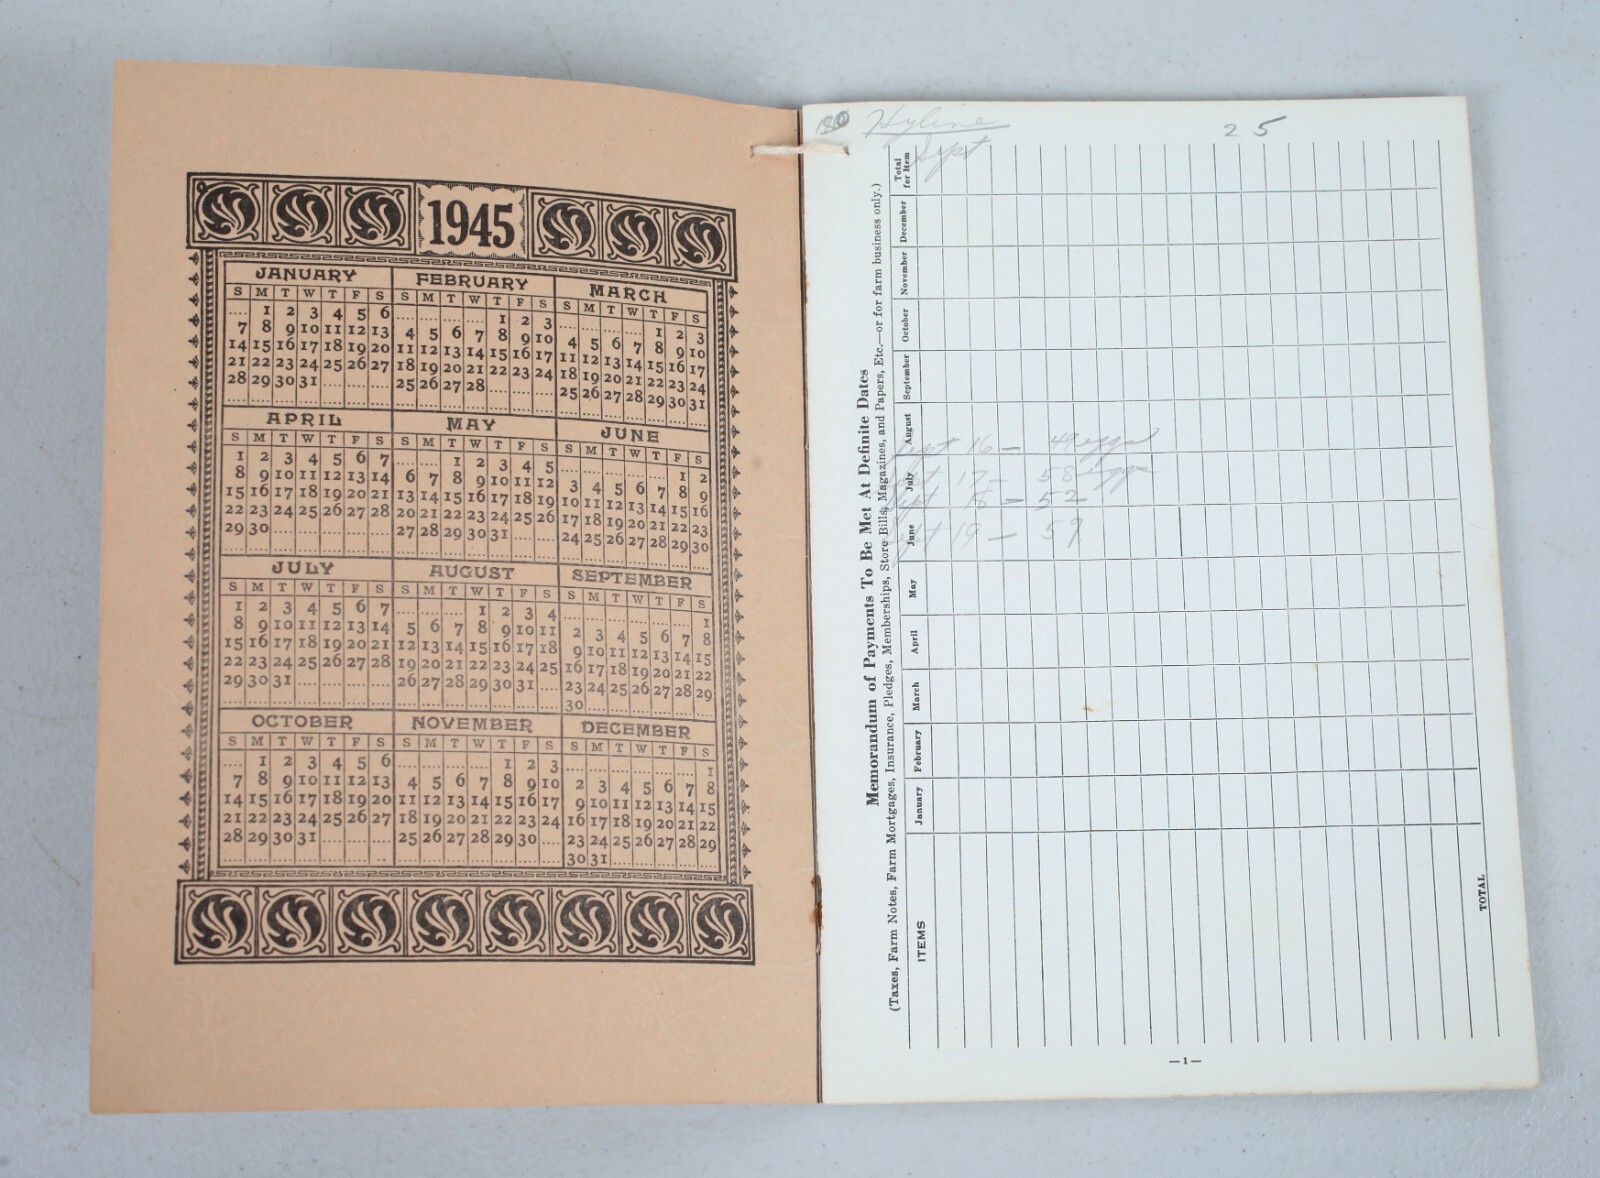 1945
JANUARY
S M T W T F S
.... 1 2 3 4 5 6
7 8 9 10 11 12 13
14 15 16 17 18 19 20
21 22 23 24 25 26 27
28 29 30 31 .... .... ....
FEBRUARY
S M T W T F S
.... .... .... .... 1 2 3
4 5 6 7 8 9 10
11 12 13 14 15 16 17
18 19 20 21 22 23 24
25 26 27 28 .... .... ....
MARCH
S M T W T F S
.... .... .... .... 1 2 3
4 5 6 7 8 9 10
11 12 13 14 15 16 17
18 19 20 21 22 23 24
25 26 27 28 29 30 31
APRIL
S M T W T F S
1 2 3 4 5 6 7
8 9 10 11 12 13 14
15 16 17 18 19 20 21
22 23 24 25 26 27 28
29 30 .... .... .... .... ....
MAY
S M T W T F S
.... .... 1 2 3 4 5
6 7 8 9 10 11 12
13 14 15 16 17 18 19
20 21 22 23 24 25 26
27 28 29 30 31 .... ....
JUNE
S M T W T F S
.... .... .... .... .... 1 2
3 4 5 6 7 8 9
10 11 12 13 14 15 16
17 18 19 20 21 22 23
24 25 26 27 28 29 30
JULY
S M T W T F S
1 2 3 4 5 6 7
8 9 10 11 12 13 14
15 16 17 18 19 20 21
22 23 24 25 26 27 28
29 30 31 .... .... .... ....
AUGUST
S M T W T F S
.... .... .... 1 2 3 4
5 6 7 8 9 10 11
12 13 14 15 16 17 18
19 20 21 22 23 24 25
26 27 28 29 30 31 ....
SEPTEMBER
S M T W T F S
.... .... .... .... .... .... 1
2 3 4 5 6 7 8
9 10 11 12 13 14 15
16 17 18 19 20 21 22
23 24 25 26 27 28 29
30 .... .... .... .... .... ....
OCTOBER
S M T W T F S
.... 1 2 3 4 5 6
7 8 9 10 11 12 13
14 15 16 17 18 19 20
21 22 23 24 25 26 27
28 29 30 31 .... .... ....
NOVEMBER
S M T W T F S
.... .... .... .... 1 2 3
4 5 6 7 8 9 10
11 12 13 14 15 16 17
18 19 20 21 22 23 24
25 26 27 28 29 30 ....
DECEMBER
S M T W T F S
.... .... .... .... .... .... 1
2 3 4 5 6 7 8
9 10 11 12 13 14 15
16 17 18 19 20 21 22
23 24 25 26 27 28 29
30 31 .... .... .... .... ....
Hyline 25
Sept
Memorandum of Payments To Be Met At Definite Dates
(Taxes, Farm Notes, Farm Mortgages, Insurance, Pledges, Memberships, Store Bills, Magazines, and Papers, Etc.—or for farm business only.)
ITEMS January February March April May June July August September October November December Total for Item
TOTAL
Sept 16 – 49 eggs
Sept 17 – 58 eggs
Sept 18 – 52
Sept 19 – 59
—1—